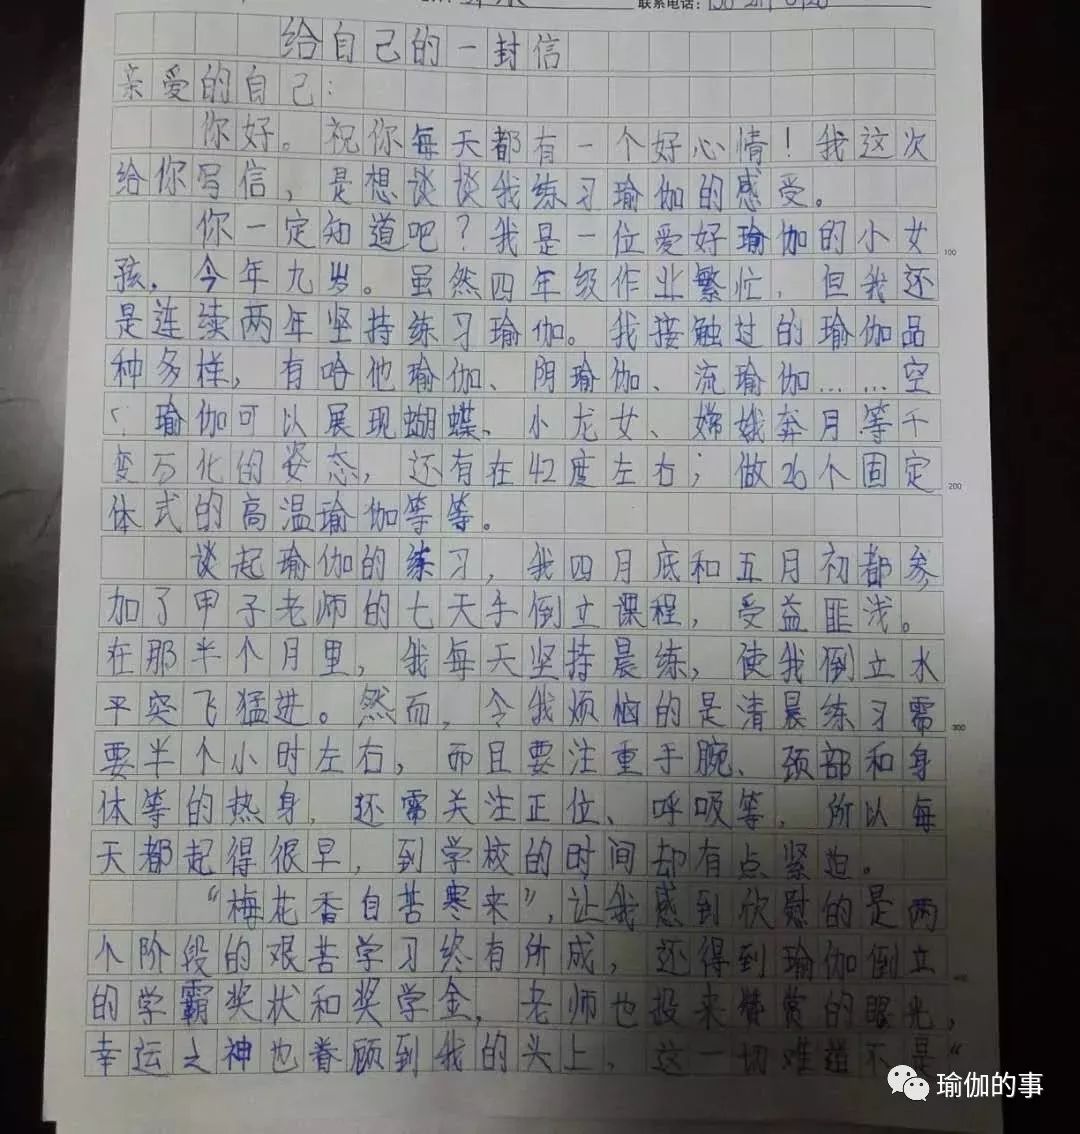 联系电话:
给自己的一封信
亲爱的自己：
你好。祝你每天都有一个好心情！我这次
给你写信，是想谈谈我练习瑜伽的感受。
你一定知道吧？我是一位爱好瑜伽的小女
孩，今年九岁。虽然四年级作业繁忙，但我还
是连续两年坚持练习瑜伽。我接触过的瑜伽品
种多样，有哈他瑜伽、阴瑜伽、流瑜伽……空
中瑜伽可以展现蝴蝶、小龙女、嫦娥奔月等千
变万化的姿态，还有在42度左右；做26个固定
体式的高温瑜伽等等。
谈起瑜伽的练习，我四月底和五月初都参
加了甲子老师的七天手倒立课程，受益匪浅。
在那半个月里，我每天坚持晨练，使我倒立水
平突飞猛进。然而，令我烦恼的是清晨练习需
要半个小时左右，而且要注重手腕、颈部和身
体等的热身，还需关注正位、呼吸等，所以每
天都起得很早，到学校的时间却有点紧迫。
“梅花香自苦寒来”，让我感到欣慰的是两
个阶段的艰苦学习终有所成，还得到瑜伽倒立
的学霸奖状和奖学金，老师也投来赞赏的眼光，
幸运之神也眷顾到我的头上，这一切难道不是“
100
200
300
400
瑜伽的事